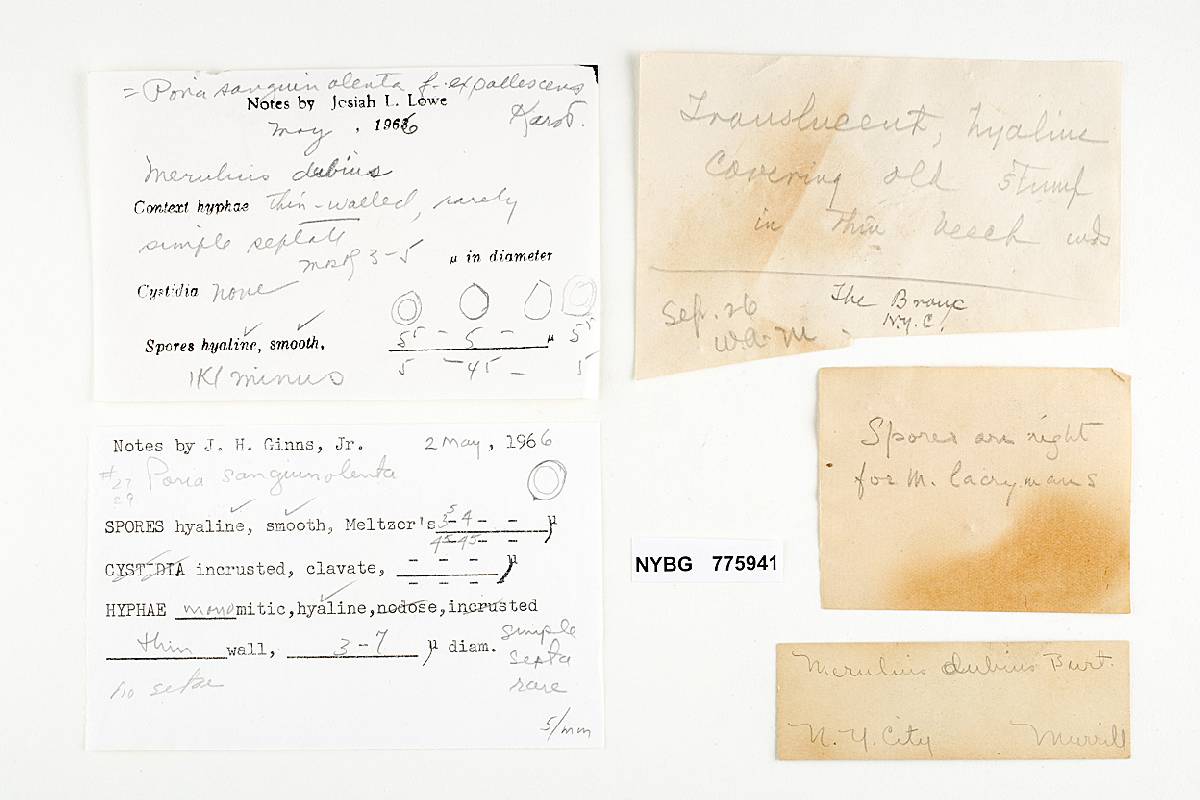 = Poria sanguinolenta f. expallescens
Karst.
Notes by Josiah L. Lowe
May, 1966
Merulius dubius
Context hyphae thin-walled, rarely
simple septate
mostly 3-5 µ in diameter
Cystidia none
Spores hyaline, smooth. 55 - 5 - µ 55
5 - 45 - 5
IKI minus
Notes by J. H. Ginns, Jr. 2 May, 1966
#27 Poria sanguinolenta
29
SPORES hyaline, smooth, Meltzer's 35-4- - µ
45-45- -
CYSTIDIA incrusted, clavate, - - - - µ
- - - -
HYPHAE monomitic, hyaline, nodose, incrusted
thin wall, 3-7 µ diam. simple
septa
rare
no setae
5/mm
Translucent, hyaline
covering old stump
in thin beech wds
The Bronx
N.Y.C.
Sep. 26
W.A.M.
Spores are right
for M. lacrymans
NYBG 775941
Merulius dubius Burt.
N. Y. City Murrill